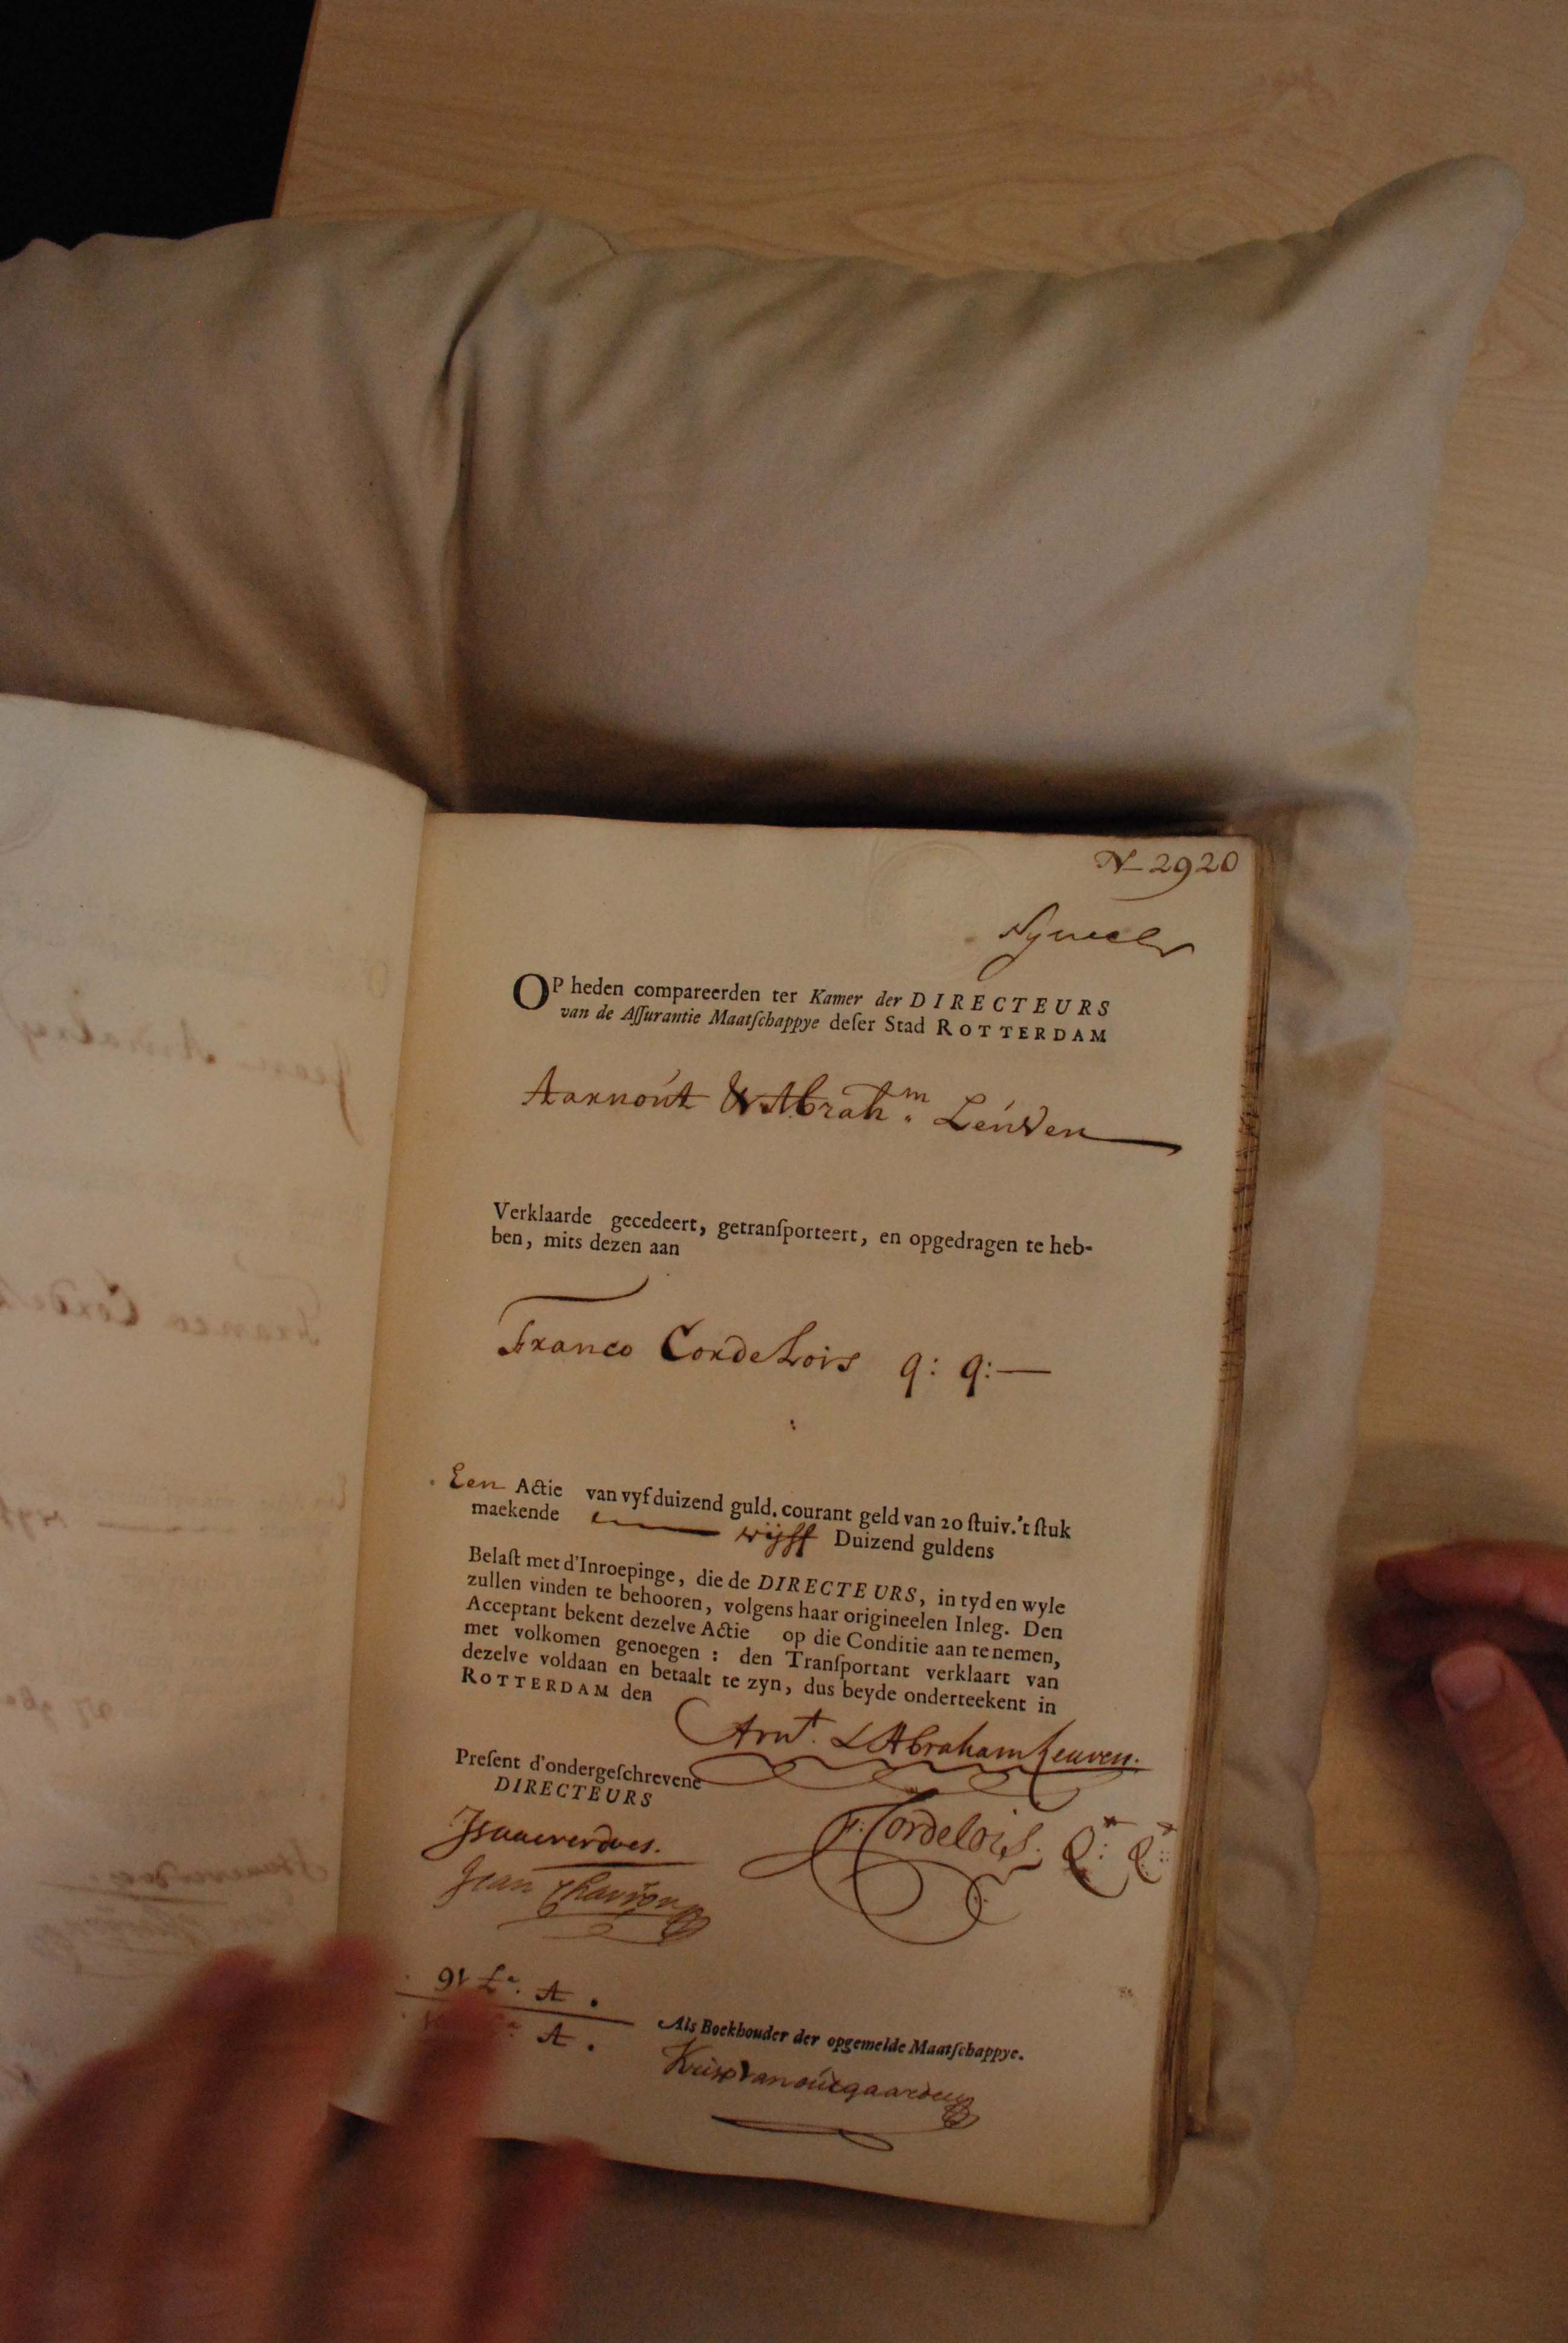 N 2920
OP heden compareerden ter Kamer der DIRECTEURS
van de Aſſurantie Maatſchappye deſer Stad ROTTERDAM
Aarnout & Abrahm. Leuven
Verklaarde gecedeert, getranſporteert, en opgedragen te heb-
ben, mits dezen aan
Franco Cordelois q: q:—
Een Actie van vyf duizend guld. courant geld van 20 ſtuiv. 't ſtuk
maekende — vyff Duizend guldens
Belaſt met d'Inroepinge, die de DIRECTEURS, in tyd en wyle
zullen vinden te behooren, volgens haar origineelen Inleg. Den
Acceptant bekent dezelve Actie op die Conditie aan te nemen,
met volkomen genoegen : den Tranſportant verklaart van
dezelve voldaan en betaalt te zyn, dus beyde onderteekent in
ROTTERDAM den
Arnt. & Abraham Leuven.
Preſent d'ondergeſchrevene
DIRECTEURS
Isaacverdoes.
F: Cordelois. Q: Q:
Jean Chavron
91 La. A .
A .
Als Boekhouder der opgemelde Maatſchappye.